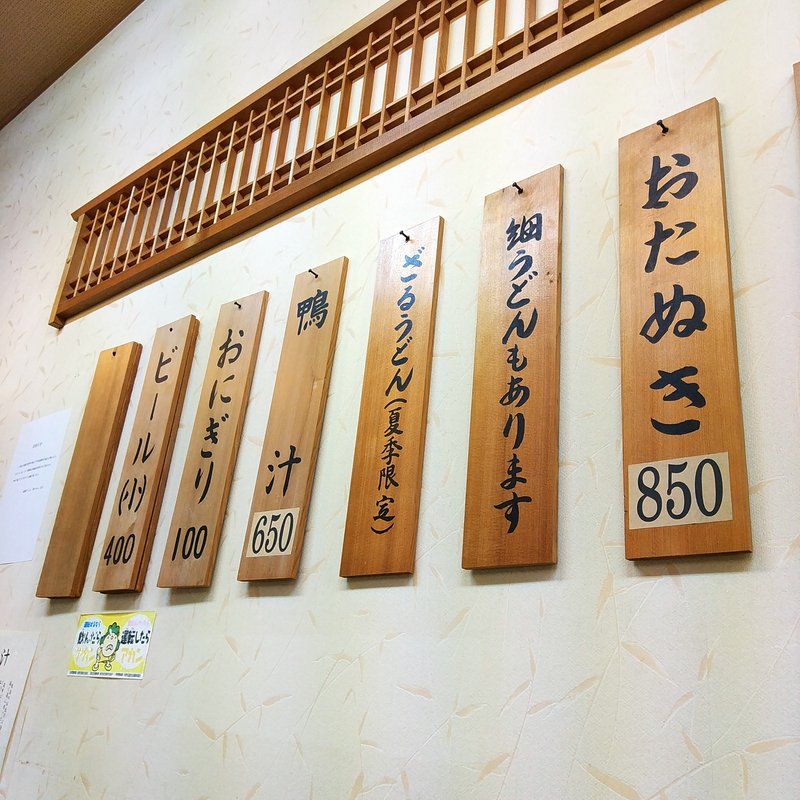 おたぬき
850
細うどんもあります
ざるうどん(夏季限定)
鴨汁
650
おにぎり
100
ビール(小)
400
飲んだら
アカン
運転したら
アカン
汁